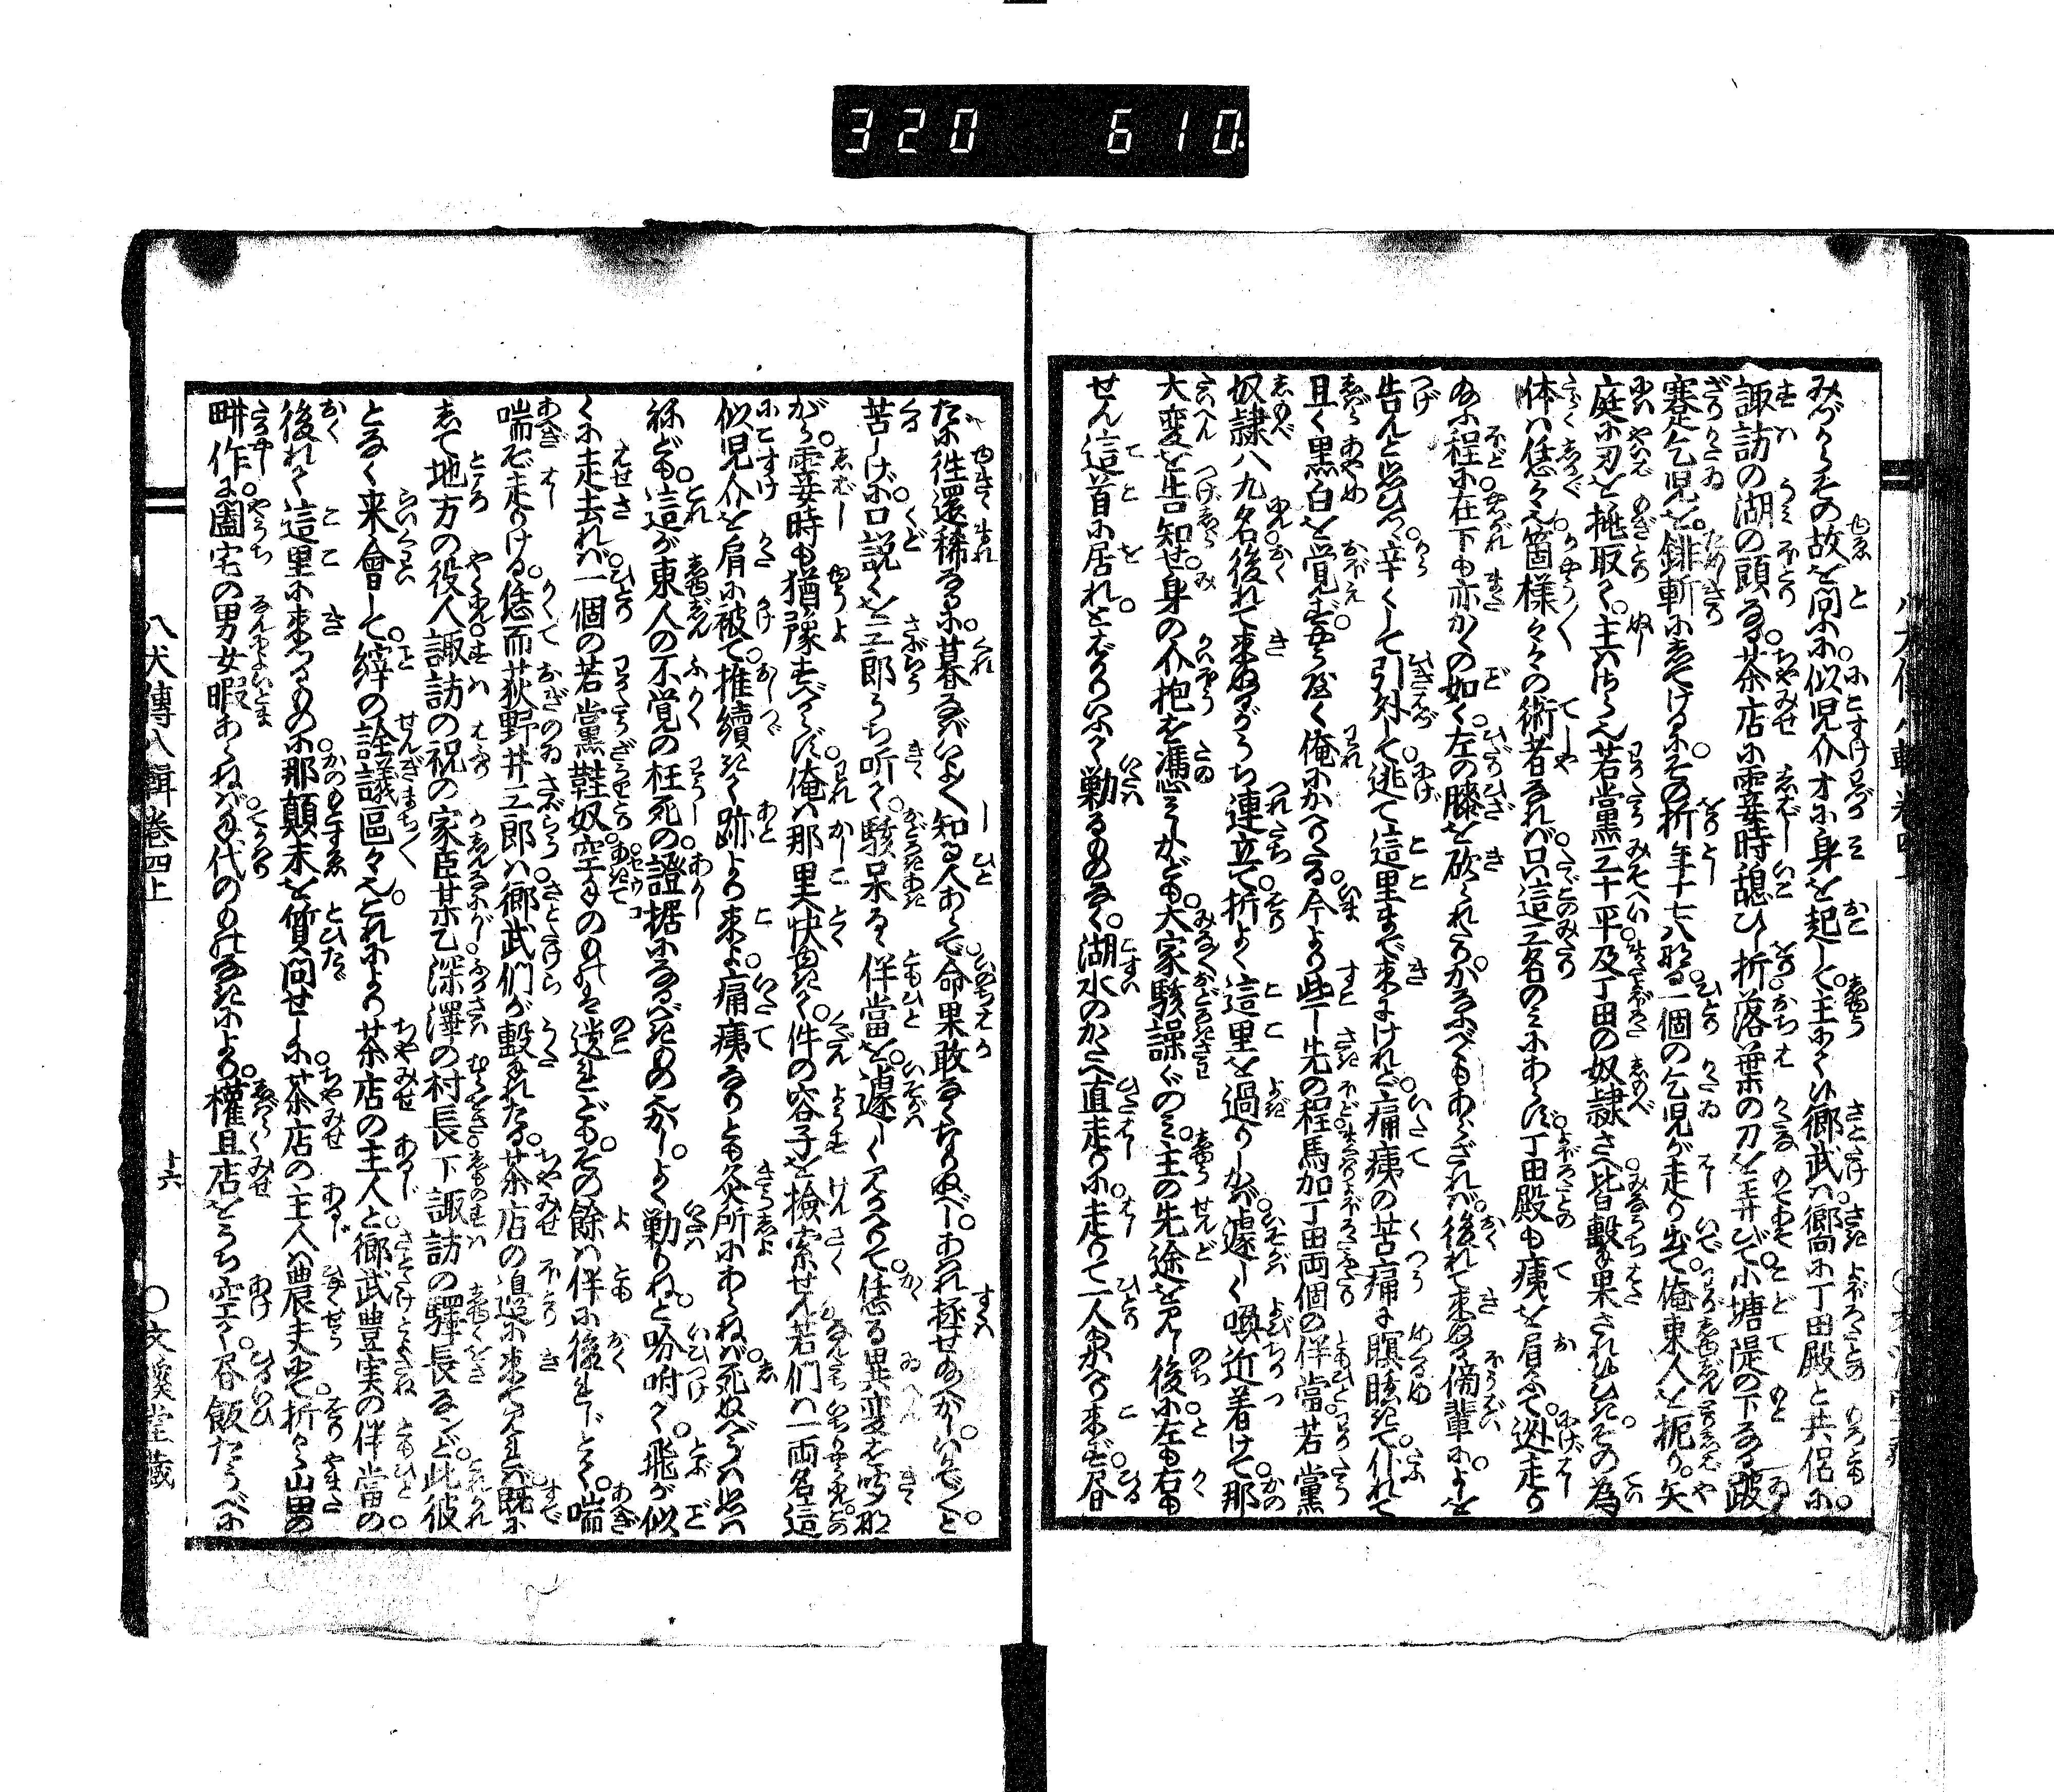 320 610
みづからその故を問ふに似児介才に身を起して主あく候郷武ハ郷向に丁田殿と共侶に
諏訪の湖の頭なる茶店に霎時憩ひし折落葉の刀を弄びて小塘隄の下なる跛
蹇乞児を鍩斬にしてけるにその折年十七八なる一個の乞児が走り出て俺東人を扼り矢
庭に刃を掻取て主ハさらへ若黨三十平及丁田の奴隷さへ皆撃果され候ひきその為
体ハ恁々箇様々々の術者なれバ只這三名のミにあらず丁田殿も痍を肩ふて迯走り
ふ程に在下も亦かくの如く左の膝を砍られたりかなふべくもあらざれバ後れて来ぬる傍輩によを
告んと思ひつ辛くして引外して逃て這里まで来にけれど痛痍の苦痛に瞑眩きて仆れて
且く黒白を覚えず 俺にかへる今より些し先の程馬加丁田両個の伴當若黨
奴隷八九名後れて来ぬるがうち連立て折よく這里を過りしかバ遽しく喚近着けて那
大変を告知せ身の介抱を憑ミしかども大家駭譟ぐのミ主の先途を見し後に左も右も
せん這首に居れとばかりいふて勦るものなく湖水のかたへ直走りに走りて一人も来ず昼
だに徃還稀なるに暮なバいよゝ知る人あらで命果敢なくなりぬべし
苦しげに口説くを三郎うち听て駭き呆るゝ伴當を遽しく見かへりて恁る異変を聞な
がら霎時も猶豫すべからず俺ハ那里へ快ゆきて件の容子を撿索せん若們ハ一両名這
似児介を肩に被て推續きて跡より来よ痛痍なりとも灸所にあらねバ死ぬべうハ思ハ
ねども這が東人の不覚の枉死の證据になるべきものぞかしよく勦りねと吩咐て飛が似
くに走去れバ一個の若黨鞋奴 のものは遺れどもその餘ハ伴に後れじとて喘
喘ぎ走りける恁而荻野井三郎ハ郷武們が撃れたる茶店の邉に来て見れバ既に
して地方の役人諏訪の祝の家臣某乙深澤の村長下諏訪の驛長なンど此彼
となく来會して縡の詮議區々なりこれにより茶店の主人と郷武豊実の伴當の
後れて這里に来つるものに那顛末を質問せしに茶店の主人ハ農夫にて折から山田の
畊作に闔宅の男女暇あらねバ手代のものなきにより權且店をうち空して昼飯たうべに
八犬傳八輯巻四上
十六
○文溪堂藏